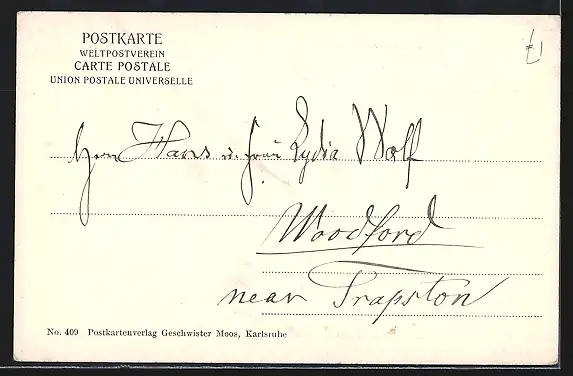 POSTKARTE
WELTPOSTVEREIN
CARTE POSTALE
UNION POSTALE UNIVERSELLE
Herrn Hans u. Frau Lydia Wolf
Woodford
near Trapston
No. 409 Postkartenverlag Geschwister Moos, Karlsruhe